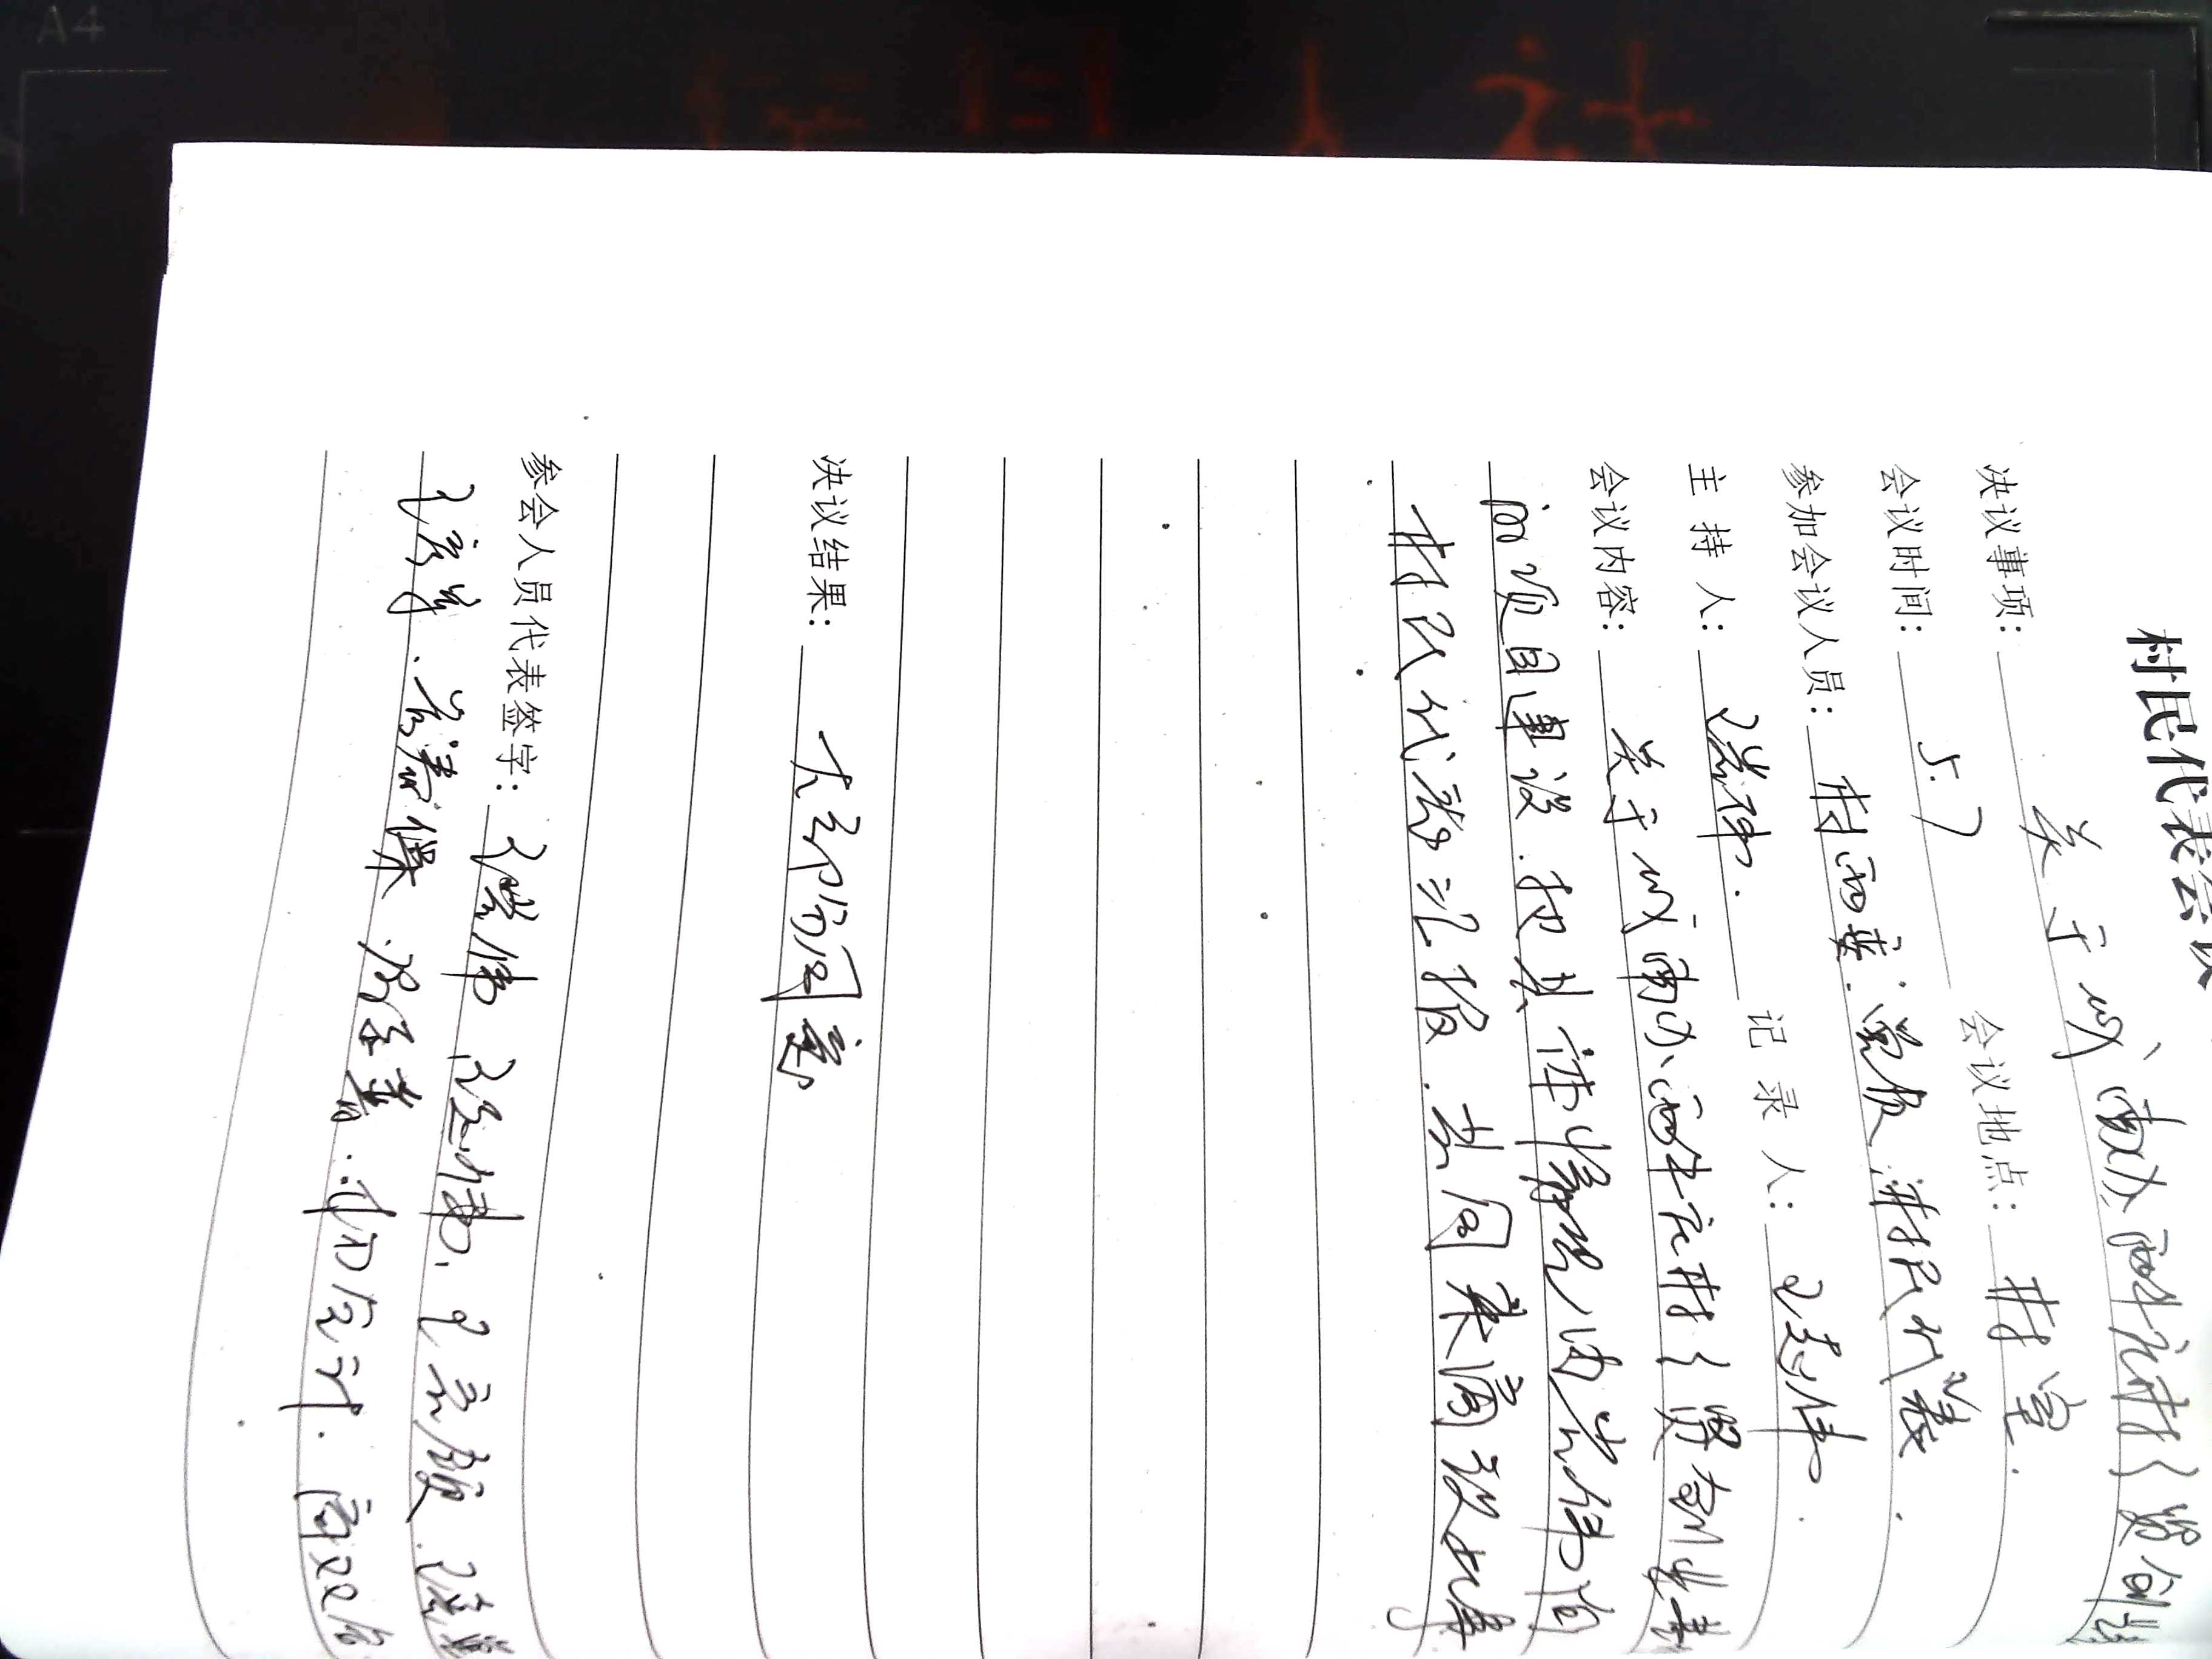 村民代表会议
决议事项: 关于城南办西牛庄村乡贤创业
会议时间: 5.7 会议地点: 村室.
参加会议人员: 村两委.党员.村民代表.
主持人: 王岩伟. 记录人: 王志伟.
会议内容: 关于城南办西牛庄村乡贤创业基
的项目建设.把具体情况由岩伟向
村民代表汇报.共同来商议此事
决议结果: 大部分同意
参会人员代表签字: 王岩伟 王志伟. 王
王彦军. 保 杨会计. 商双
A4